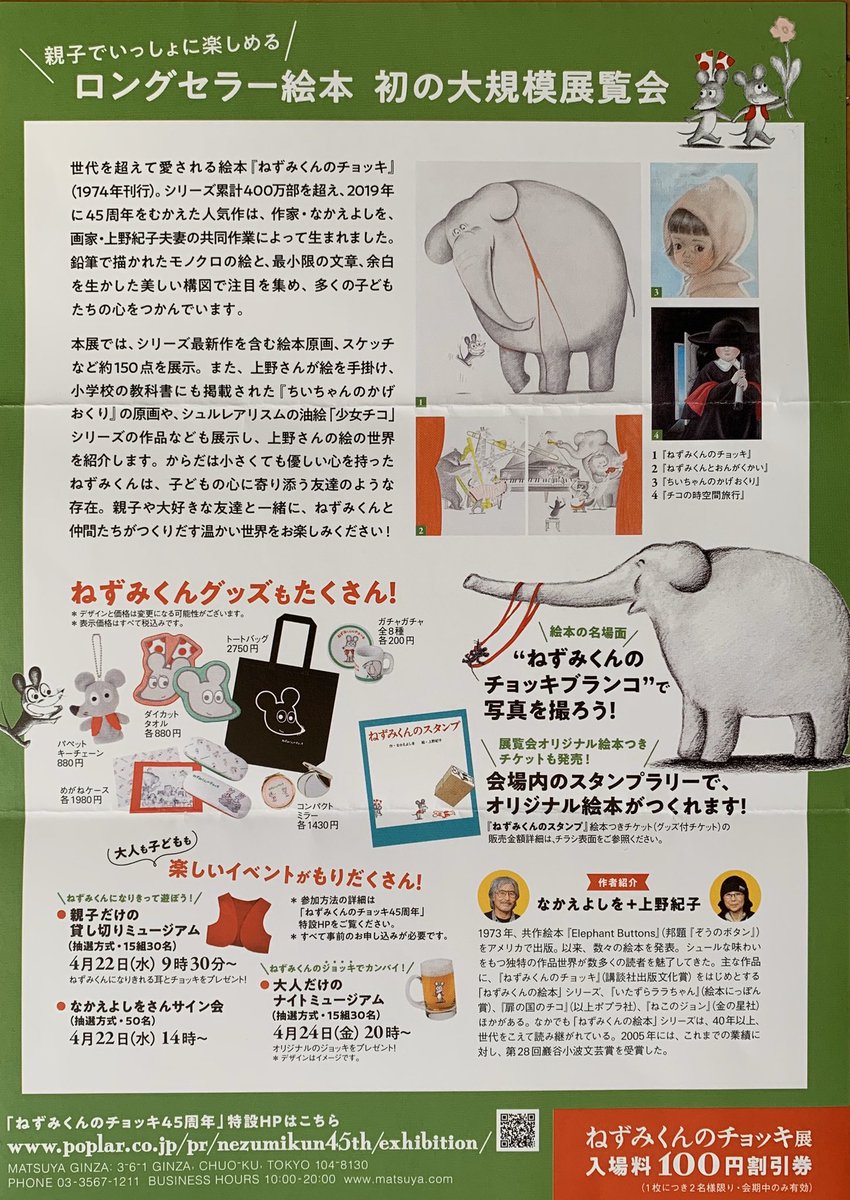 親子でいっしょに楽しめる
ロングセラー絵本 初の大規模展覧会
世代を超えて愛される絵本『ねずみくんのチョッキ』
(1974年刊行)。シリーズ累計400万部を超え、2019年
に45周年をむかえた人気作は、作家・なかえよしを、
画家・上野紀子夫妻の共同作業によって生まれました。
鉛筆で描かれたモノクロの絵と、最小限の文章、余白
を生かした美しい構図で注目を集め、多くの子ども
たちの心をつかんでいます。
本展では、シリーズ最新作を含む絵本原画、スケッチ
など約150点を展示。また、上野さんが絵を手掛け、
小学校の教科書にも掲載された『ちいちゃんのかげ
おくり』の原画や、シュルレアリスムの油絵「少女チコ」
シリーズの作品なども展示し、上野さんの絵の世界
を紹介します。からだは小さくても優しい心を持った
ねずみくんは、子どもの心に寄り添う友達のような
存在。親子や大好きな友達と一緒に、ねずみくんと
仲間たちがつくりだす温かい世界をお楽しみください!
1
2
3
4
1『ねずみくんのチョッキ』
2『ねずみくんとおんがくかい』
3『ちいちゃんのかげおくり』
4『チコの時空間旅行』
ねずみくんグッズもたくさん!
* デザインと価格は変更になる可能性がございます。
* 表示価格はすべて税込みです。
パペット
キーチェーン
880円
ダイカット
タオル
各880円
トートバッグ
2750円
ガチャガチャ
全8種
各200円
めがねケース
各1980円
コンパクト
ミラー
各1430円
ねずみくんのスタンプ
作・なかえよしを 絵・上野紀子
絵本の名場面
“ねずみくんの
チョッキブランコ”で
写真を撮ろう!
展覧会オリジナル絵本つき
チケットも発売!
会場内のスタンプラリーで、
オリジナル絵本がつくれます!
『ねずみくんのスタンプ』絵本つきチケット(グッズ付チケット)の
販売金額詳細は、チラシ表面をご参照ください。
大人も子どもも
楽しいイベントがもりだくさん!
ねずみくんになりきって遊ぼう!
● 親子だけの
貸し切りミュージアム
(抽選方式・15組30名)
4月22日(水) 9時30分~
ねずみくんになりきれる耳とチョッキをプレゼント!
● なかえよしをさんサイン会
(抽選方式・50名)
4月22日(水) 14時~
* 参加方法の詳細は
「ねずみくんのチョッキ45周年」
特設HPをご覧ください。
* すべて事前のお申し込みが必要です。
ねずみくんのジョッキでカンパイ!
● 大人だけの
ナイトミュージアム
(抽選方式・15組30名)
4月24日(金) 20時~
オリジナルのジョッキをプレゼント!
* デザインはイメージです。
作者紹介
なかえよしを+上野紀子
1973年、共作絵本『Elephant Buttons』(邦題『ぞうのボタン』)
をアメリカで出版。以来、数々の絵本を発表。シュールな味わい
をもつ独特の作品世界が数多くの読者を魅了してきた。主な作品
に、『ねずみくんのチョッキ』(講談社出版文化賞)をはじめとする
「ねずみくんの絵本」シリーズ、『いたずらララちゃん』(絵本にっぽん
賞)、『扉の国のチコ』(以上ポプラ社)、『ねこのジョン』(金の星社)
ほかがある。なかでも「ねずみくんの絵本」シリーズは、40年以上、
世代をこえて読み継がれている。2005年には、これまでの業績に
対し、第28回巖谷小波文芸賞を受賞した。
「ねずみくんのチョッキ45周年」特設HPはこちら
www.poplar.co.jp/pr/nezumikun45th/exhibition/
MATSUYA GINZA: 3-6-1 GINZA, CHUO-KU, TOKYO 104-8130
PHONE 03-3567-1211 BUSINESS HOURS 10:00-20:00 www.matsuya.com
ねずみくんのチョッキ展
入場料100円割引券
(1枚につき2名様限り・会期中のみ有効)